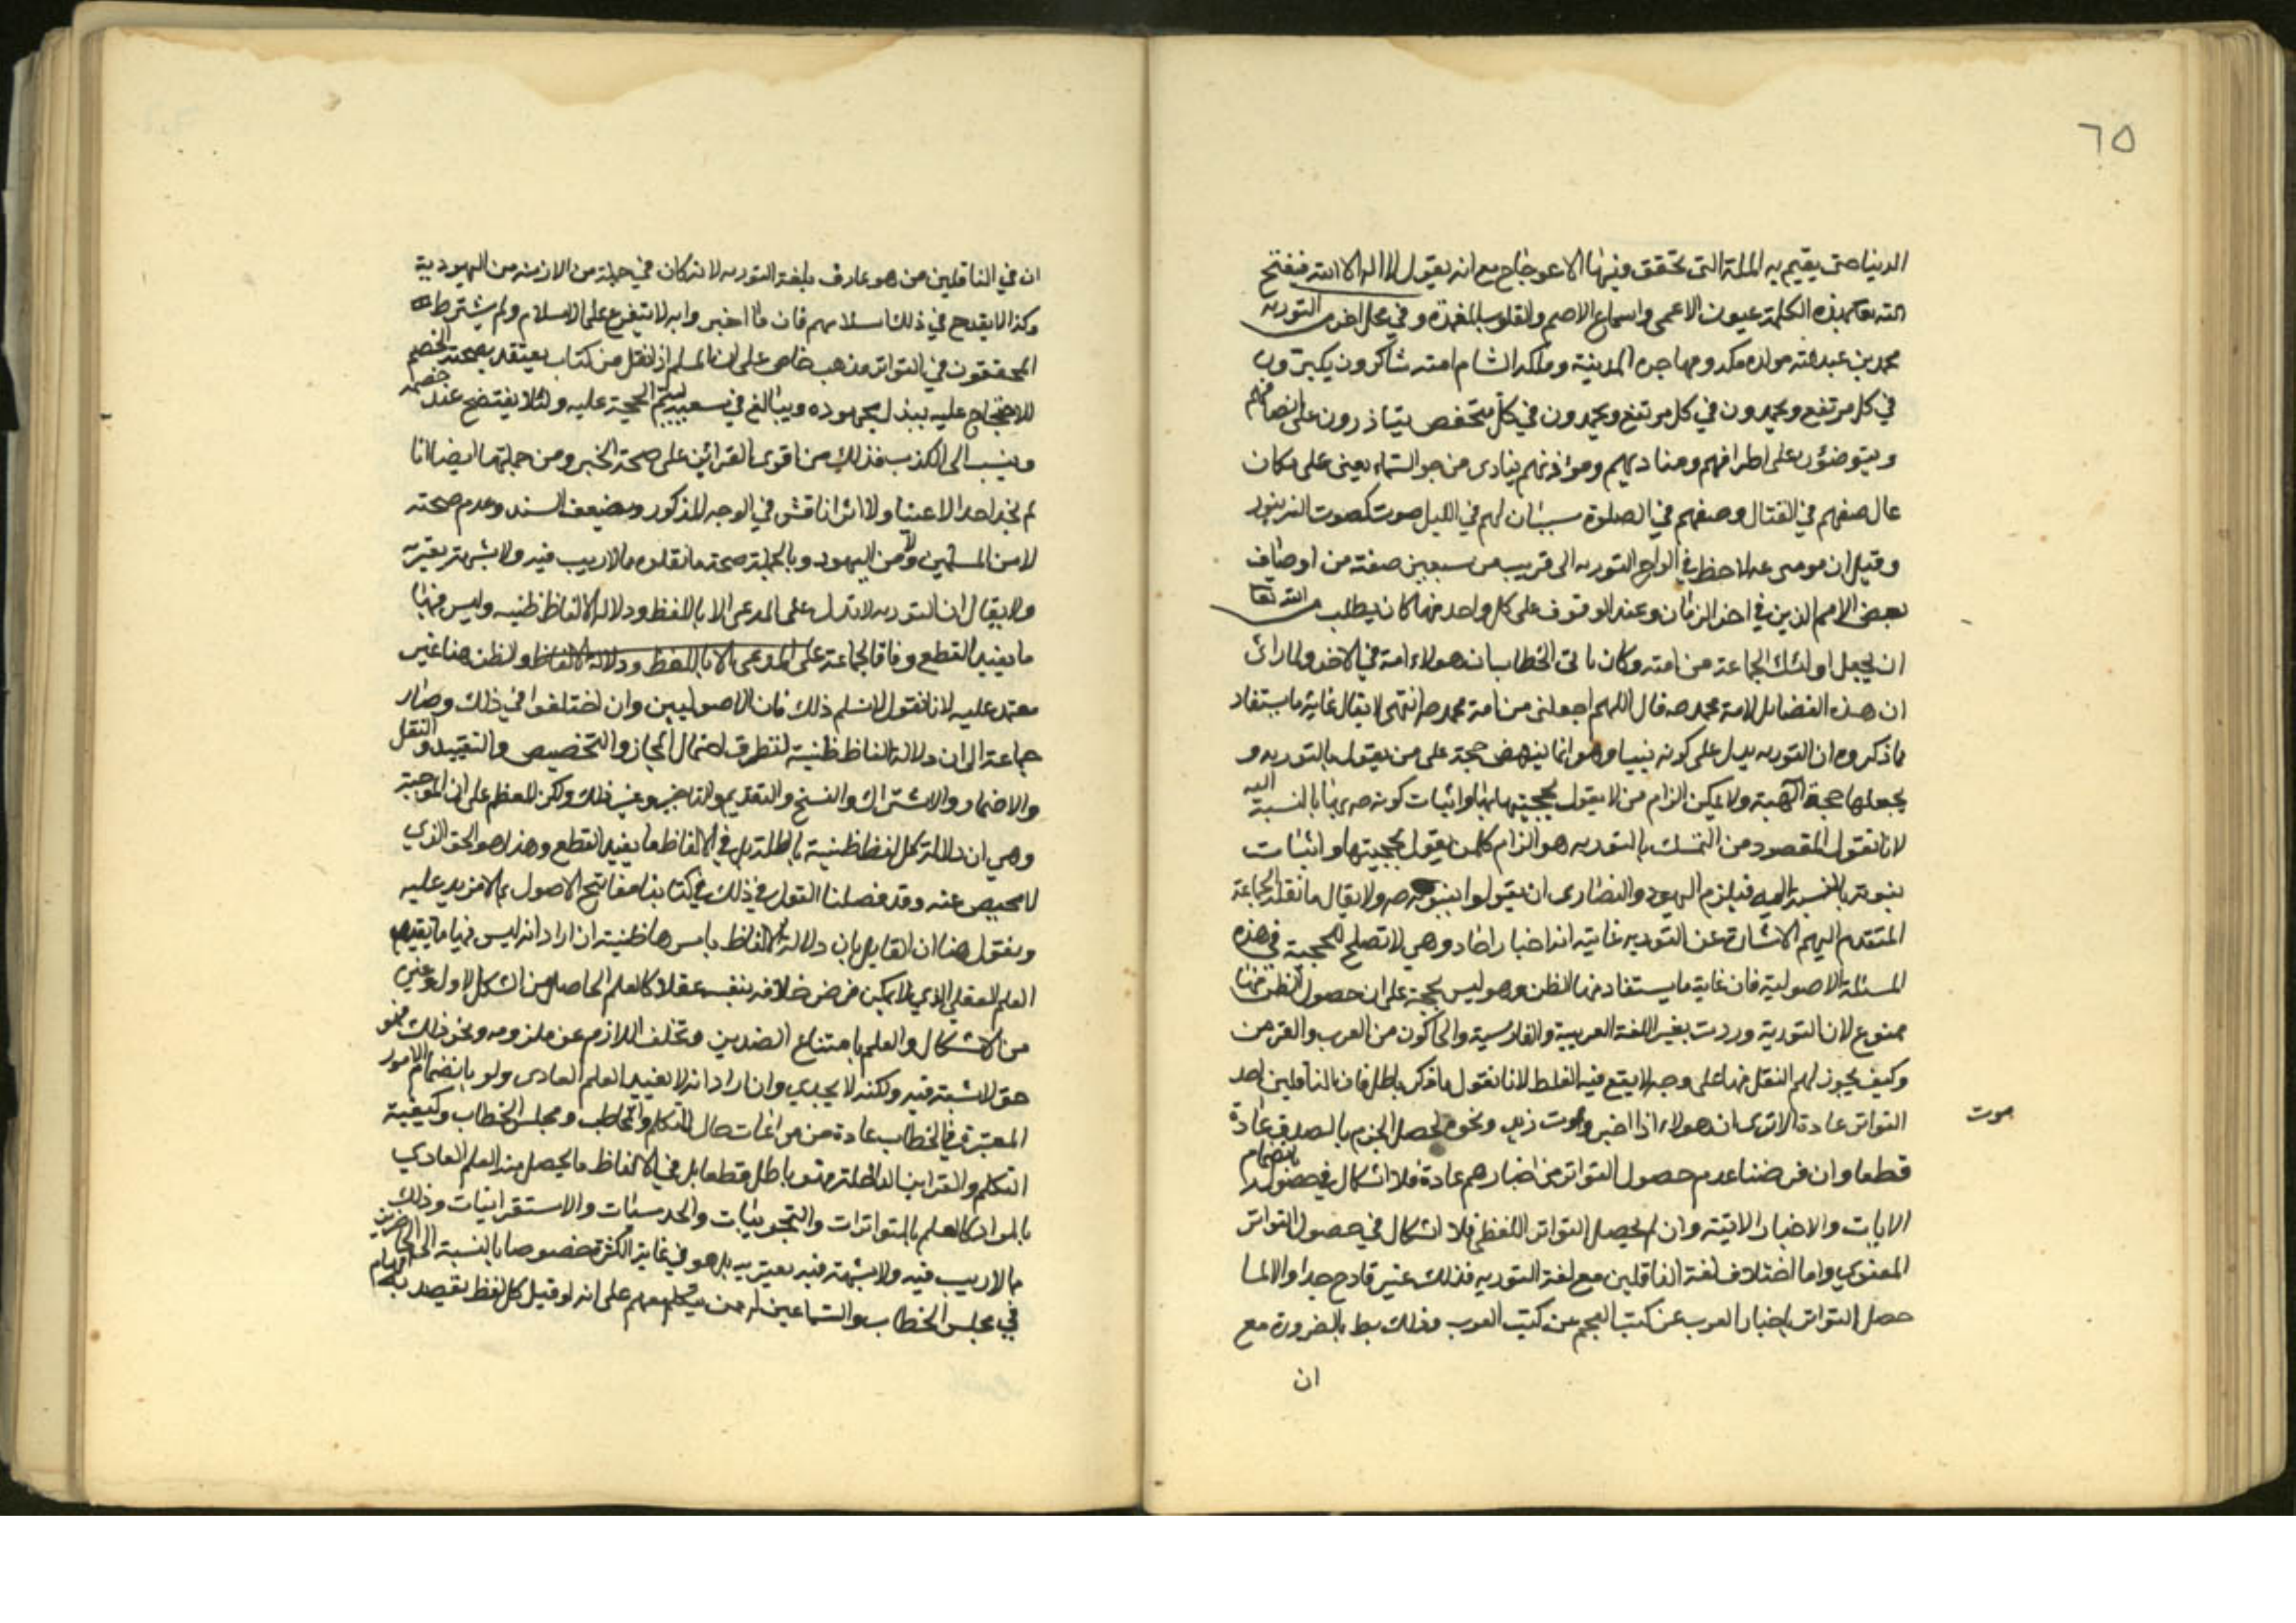 ٦٥
الدنيا حتى يقيم به الملة التي تحقق فيها الاعوجاج مع انه يقول لا اله الا الله فيفتح
الله بهذه الكلمة عيون الاعمى واسماع الاصم والقلوب المغمدة وفي محل اخر من التوريه
محمد بن عبد الله مولده مكه ومهاجره المدينة وملكه الشام امته شاكرون يكبرون
في كل مرتفع ويحمدون في كل مرتفع ويحمدون في كل منخفص يتاذرون على انصافهم
ويتوضؤن على اطرافهم ومناديهم ومؤاذنهم ينادى من جو السماء يعني على مكان
عال صفهم في القتال وصفهم في الصلوة سيان لهم في الليل صوت كصوت الزنبور
وقيل ان موسى ع لاحظ في الواح التوريه الى قريب من سبعين صفة من اوصاف
بعض الامم الذين في اخر الزمان وعند الوقوف على كل واحد منها كان يطلب من الله تعا
ان يجعل اولئك الجماعة من امته وكان ياتى الخطاب ان هولاء امة في الاخر ولما رائ
ان هذه الفضايل لامة محمد ص قال اللهم اجعلني من امة محمد ص انتهى لا يقال غاية ما يستفاد
مما ذكروه ان التوريه يدل على كونه نبيا وهو انما ينهض حجة على من يقول بالتوريه و
يجعلها حجة الهية ولا يمكن الزام من لا يقول بحجيتها بها واثبات كونه ص نبيا بالنسبة اليه
لانا نقول المقصود من التمسك بالتوريه هو الزام كل من يقول بحجيتها واثبات
نبوته بالنسبة اليه فيلزم اليهود والنصارى ان يقولوا بنبوته ص ولا يقال ما نقله الجماعة
المتقدم اليهم الاشارة عن التوريه غايته انه اخبار احاد وهي لا تصلح للحجية في هذه
المسئلة الاصولية فان غاية ما يستفاد منها الظن وهو ليس بحجة على ان حصول الظن منها
ممنوع لان التورية وردت بغير اللغة العربية والفارسية والحاكون من العرب والفرس
وكيف يجوز لهم النقل منها على وجه لا يقع فيه الغلط لانا نقول ما ذكر باطل فان الناقلين احد
التواتر عادة الا ترى ان هولاء اذا اخبروا بموت زيد ونحوه يحصل الجزم بالصدق عادة
موت
قطعا وان فرضنا عدم حصول التواتر من اخبارهم عادة فلا اشكال في حصوله بانضمام
الايات والاخبار الاتية وان لم يحصل التواتر اللفظي فلا اشكال في حصول التواتر
المعنوي واما اختلاف لغة الناقلين مع لغة التوريه فذلك غير قادح جدا والا لما
حصل التواتر باخبار العرب عن كتب العجم عن كتب العرب وذلك بط بالضرورة مع
ان
ان في الناقلين من هو عارف بلغة التوريه لانه كان في جملة من الازمنه من اليهودية
وكذا لا يقدح في ذلك اسلامهم فان ما اخبروا به لا يتفرع على الاسلام ولم يشترط
المحققون في التواتر مذهب خاص على ان المسلم اذا نقل من كتاب يعتقد بصحته الخصم
للاحتجاج عليه يبذل مجهوده ويبالغ في سعيه ليتم الحجة عليه ولئلا يفتضح عند خصمه
وينسب الى الكذب فذلك من اقوى القرائن على صحة الخبر ومن جملتها ايضا انا
لم نجد احدا لا عينا ولا اثرا ناقش في الوجه المذكور وبضعف السند وعدم صحته
لا من المسلمين ولا من اليهود وبالجملة صحة ما نقلوه مما لا ريب فيه ولا شبهة يعتريه
ولا يقال ان التوريه لا تدل على المدعى الا باللفظ ودلالة الالفاظ ظنيه وليس فيها
ما يفيد القطع وفاقا لجماعة على المدعى الا باللفظ ودلالة الالفاظ والظن هنا غير
معتمد عليه لانا نقول لا نسلم ذلك فان الاصوليين وان اختلفوا في ذلك وصار
جماعة الى ان دلالة الفاظ ظنية لتطرق احتمال المجاز والتخصيص والتقييد والنقل
والاضمار والاشتراك والنسخ والتقديم والتاخير وغير ذلك ولكن المعظم على ان الموجبة
وهي ان دلالة كل لفظ ظنية باطلة بل في الالفاظ ما يفيد القطع وهذا هو الحق الذي
لا محيص عنه وقد فصلنا القول في ذلك في كتابنا مفاتيح الاصول بما لا مزيد عليه
ونقول هنا ان القايل بان دلالة الالفاظ باسرها ظنية ان اراد انه ليس فيها ما يفيد
العلم العقلي الذي لا يمكن فرض خلافه بنفسه عقلا كالعلم الحاصل من الشكل الاول وغيره
من الاشكال والعلم بامتناع الضدين وتخلف اللازم عن ملزومه ونحو ذلك فهو
حق لا شبهة فيه ولكنه لا يجدي وان اراد انه لا يفيد العلم العادى ولو بانضمام الامور
المعتبرة في الخطاب عادة من مراعات حال المتكلم والمخاطب ومجلس الخطاب وكيفية
التكلم والقراين الداخلة فهو باطل قطعا بل في الالفاظ ما يحصل منه العلم العادي
بالمراد كالعلم بالمتواترات والتجربيات والحدسيات والاستقرائيات وذلك
مما لا ريب فيه ولا شبهة فيه يعتريه بل هو في غاية الكثرة خصوصا بالنسبة الى الحاضرين
في مجلس الخطاب والسامعين له ممن يتكلم معهم على انه لو قيل كل لفظ يقصد به